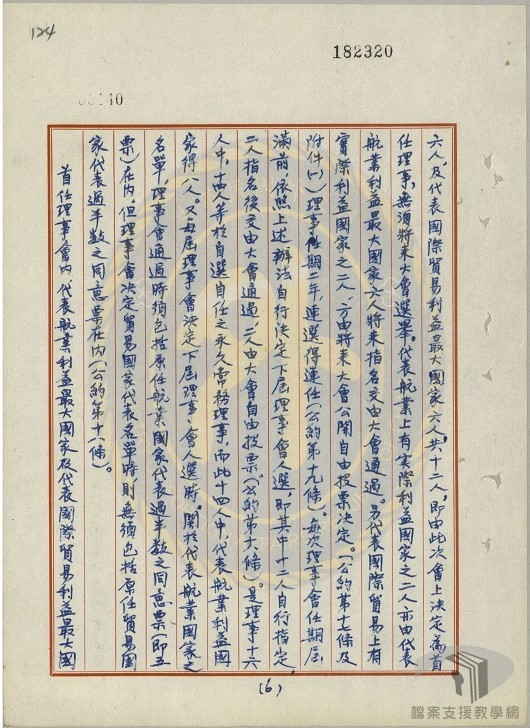 124
182320
00140
六人，及代表國際貿易利益最大國家六人，共十二人，即由此次會上決定為首
任理事，無須將來大會選舉。代表航業上有實際利益國家之二人亦由代表
航業利益最大國家六人將來指名交由大會通過。另代表國際貿易上有
實際利益國家之二人，方由將來大會公開自由投票決定。（公約第十七條及
附件一）理事任期二年，連選得連任（公約第十九條）。每次理事會任期屆
滿前，依照上述辦法自行決定下屆理事會人選，即其中十二人自行指定，
二人指名後交由大會通過，二人由大會自由投票（公約第十八條）。是理事十六
人中，十四人等於自選自任之永久常務理事，而此十四人中，代表航業利益國
家得八人。又每屆理事會決定下屆理事會人選時，關於代表航業國家之
名單，理事會通過時須包括原任航業國家代表過半數之同意票（即五
票）在內。但理事會決定貿易國家代表名單時，則無須包括原任貿易國
家代表過半數之同意票在內（公約第十八條）。
首任理事會內代表航業利益最大國家及代表國際貿易利益最大國
(6)
檔案支援教學網